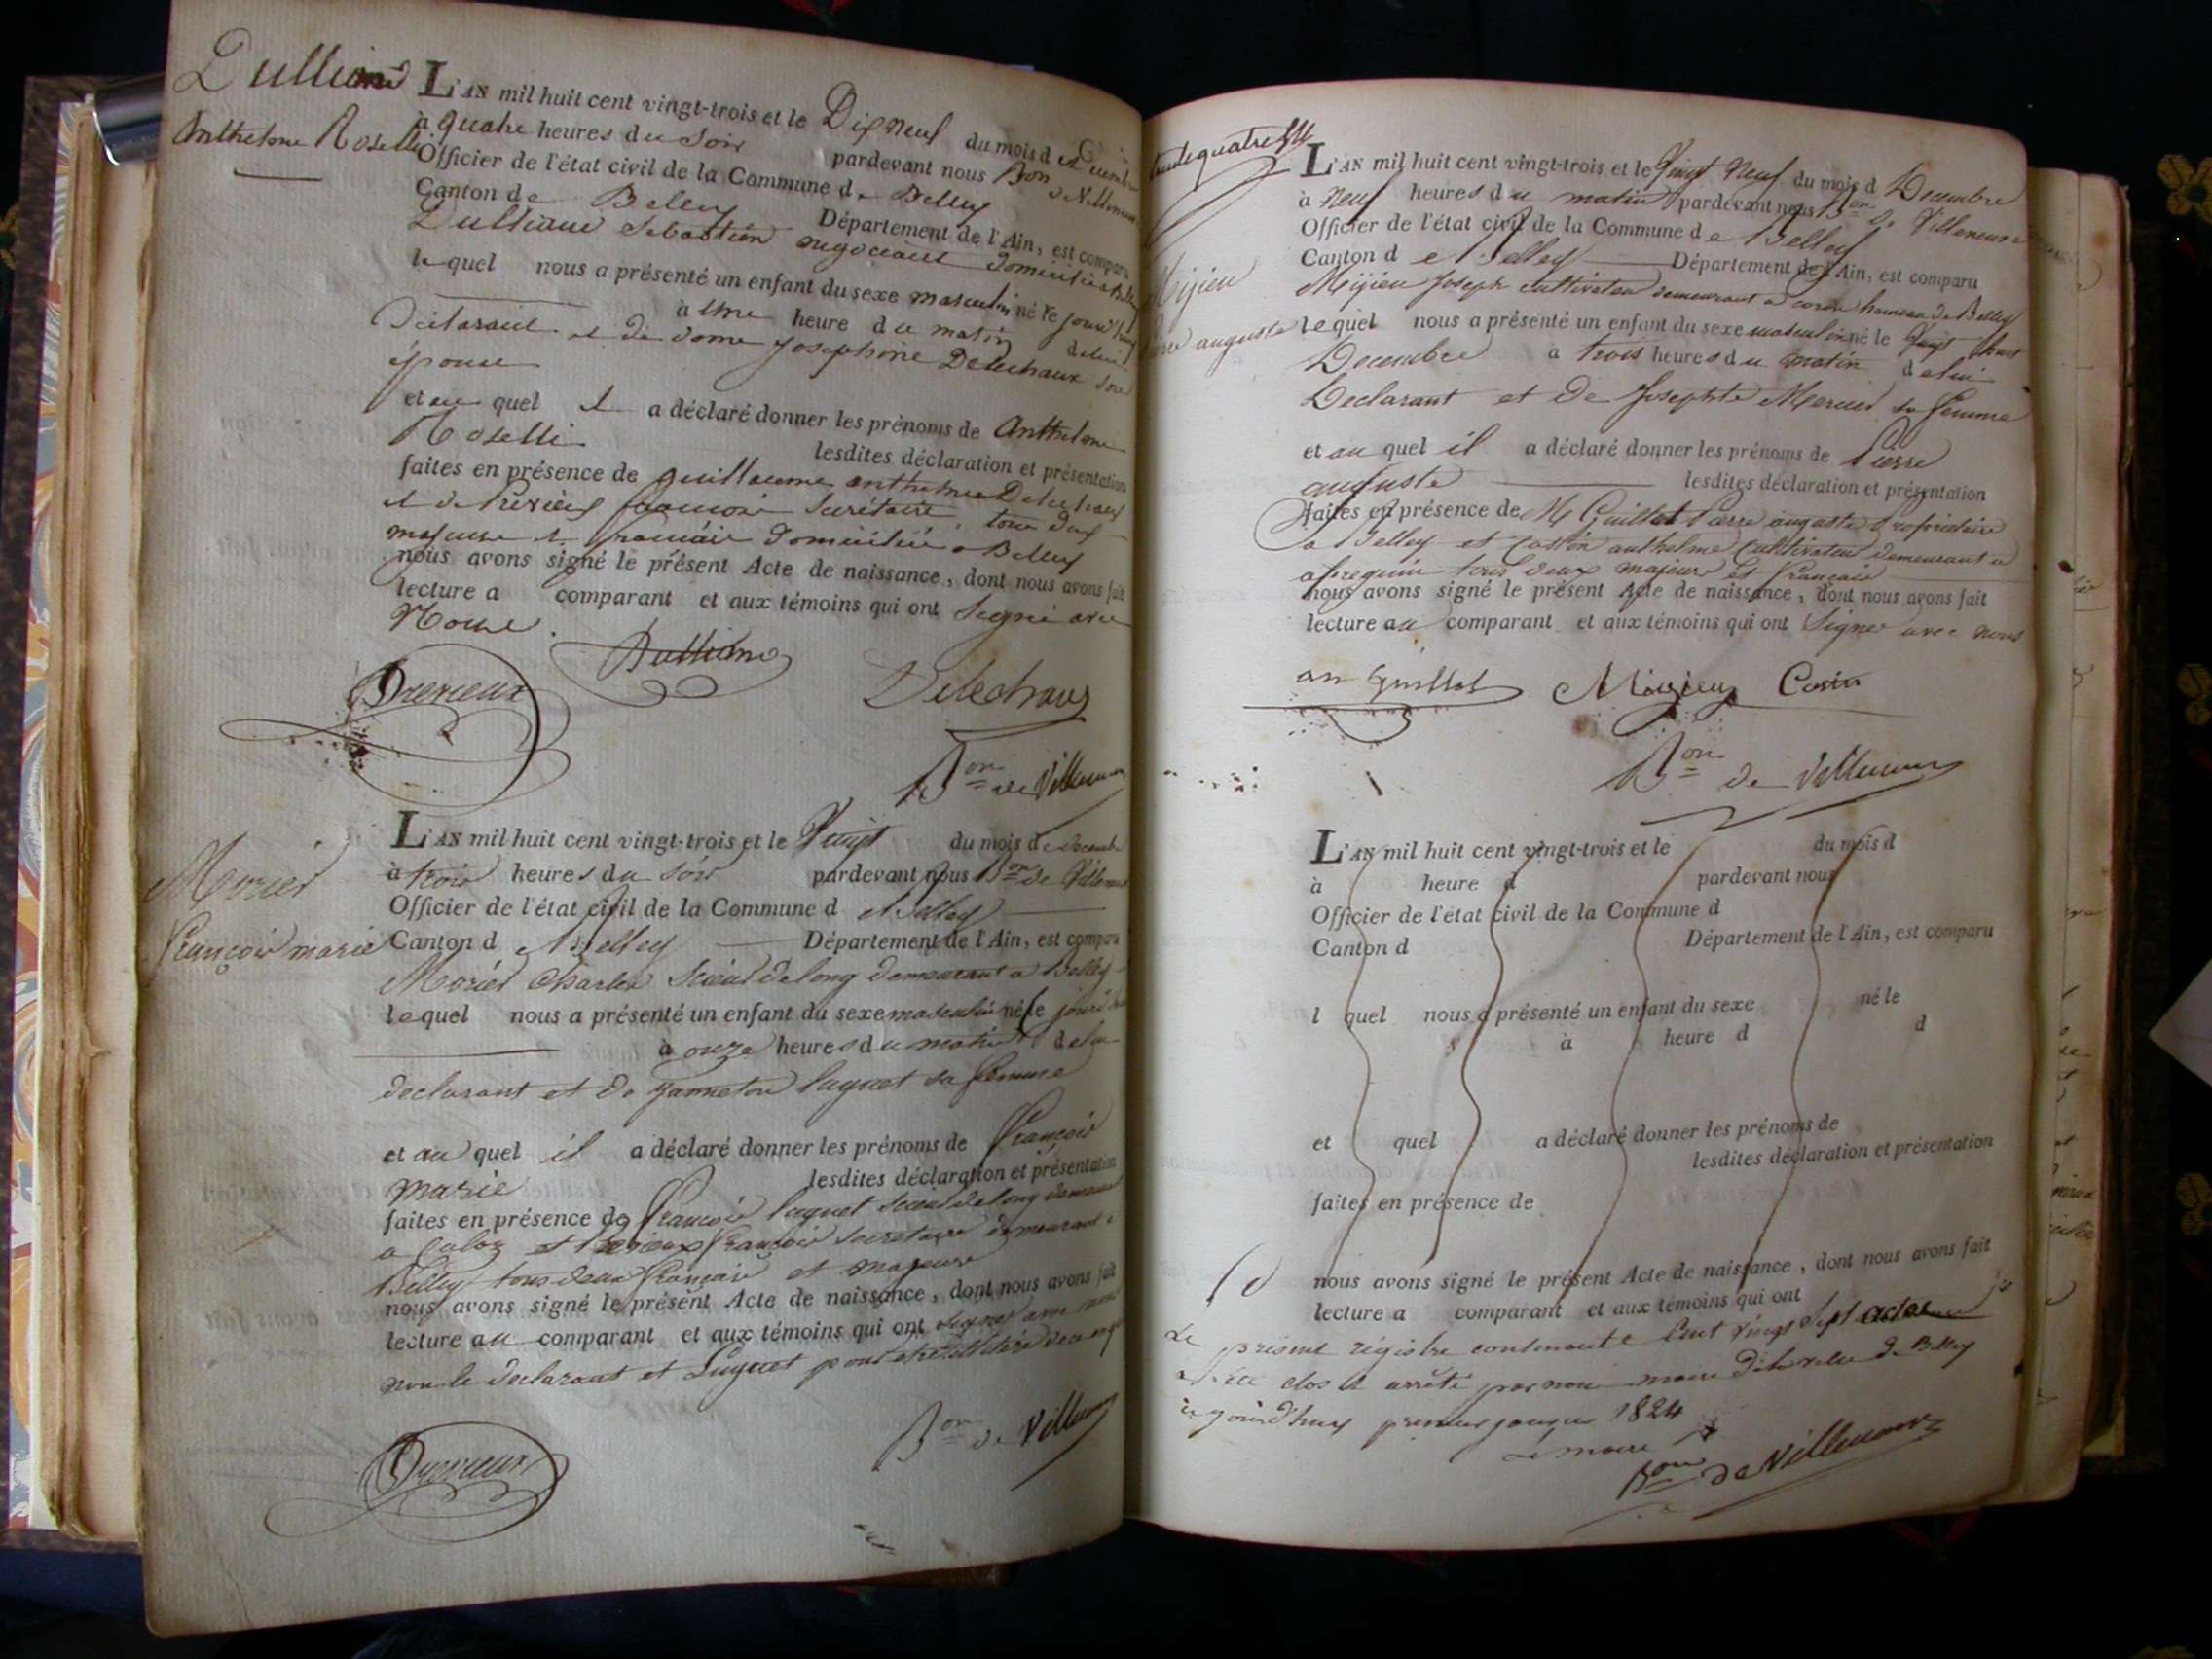 Dulliand
Anthelme Roselli
L'AN mil huit cent vingt-trois et le Dix neuf du mois de Décembre
à quatre heures du soir pardevant nous Bon de Villeneuve
Officier de l'état civil de la Commune de Belley
Canton de Belley Département de l'Ain, est comparu
Dulliand Sebastien negociant domicilié à Belley
lequel nous a présenté un enfant du sexe masculin né le jourd'huy
à une heure du matin de lui
Déclarant et de dame Josephine Delechaux son
épouse
et au quel il a déclaré donner les prénoms de Anthelme
Roselli lesdites déclaration et présentation
faites en présence de guillaume anthelme Delechaux
et de Prerieux françois secrétaire, tous deux
majeurs et français domiciliés a Belley
nous avons signé le présent Acte de naissance, dont nous avons fait
lecture a comparant et aux témoins qui ont signé avec
Nous.
Dulliand
Prerieux
Delechaux
Bon de Villeneuve
Morier
François marie
L'AN mil huit cent vingt-trois et le Vingt du mois de Decembre
à trois heures du soir pardevant nous Bon de Villeneuve
Officier de l'état civil de la Commune de Belley
Canton de Belley Département de l'Ain, est comparu
Morier Charles Scieur de long demeurant a Belley
lequel nous a présenté un enfant du sexe masculin né le jourd'hui
à onze heures du matin de lui
declarant et de Janneton luquet sa femme
et au quel il a déclaré donner les prénoms de François
marie lesdites déclaration et présentation
faites en présence de François luquet scieur de long demeurant
a Culoz et Prerieux François secretaire demeurant a
Belley tous deux Français et majeurs
nous avons signé le présent Acte de naissance, dont nous avons fait
lecture au comparant et aux témoins qui ont signer avec nous
non le declarant et Luquet pour etre illitéré de ce enquis
Prerieux
Bon de Villeneuve
trente quatre 34
Mijieu
Pierre auguste
L'AN mil huit cent vingt-trois et le Vingt Neuf du mois d Decembre
à Neuf heures du matin pardevant nous Bon de Villeneuve
Officier de l'état civil de la Commune de Belley
Canton de Belley Département de l'Ain, est comparu
Mijieu Joseph cultivateur demeurant a coron hameau de Belley
lequel nous a présenté un enfant du sexe masculin né le Vingt huit
Decembre à trois heures du matin de lui
Declarant et de Josephte Mercier sa femme
et au quel il a déclaré donner les prénoms de Pierre
auguste lesdites déclaration et présentation
faites en présence de M Guillot Pierre auguste Proprietaire
a Belley et Castin anthelme Cultivateur demeurant a
apregnin tous deux majeurs et Français
nous avons signé le présent Acte de naissance, dont nous avons fait
lecture au comparant et aux témoins qui ont Signer avec nous
an Guillot Migieu Castin
Bon de Villeneuve
L'AN mil huit cent vingt-trois et le du mois d
à heure d pardevant nous
Officier de l'état civil de la Commune d
Canton d Département de l'Ain, est comparu
l quel nous a présenté un enfant du sexe né le
à heure d d
et quel a déclaré donner les prénoms de
lesdites déclaration et présentation
faites en présence de
nous avons signé le présent Acte de naissance, dont nous avons fait
lecture a comparant et aux témoins qui ont
Le présent régistre contenant Cent Vingt Sept actes
a été clos et arrêté par nous maire de la ville de Belley
aujourd'huy premier janvier 1824
Le maire
Bon de Villeneuve